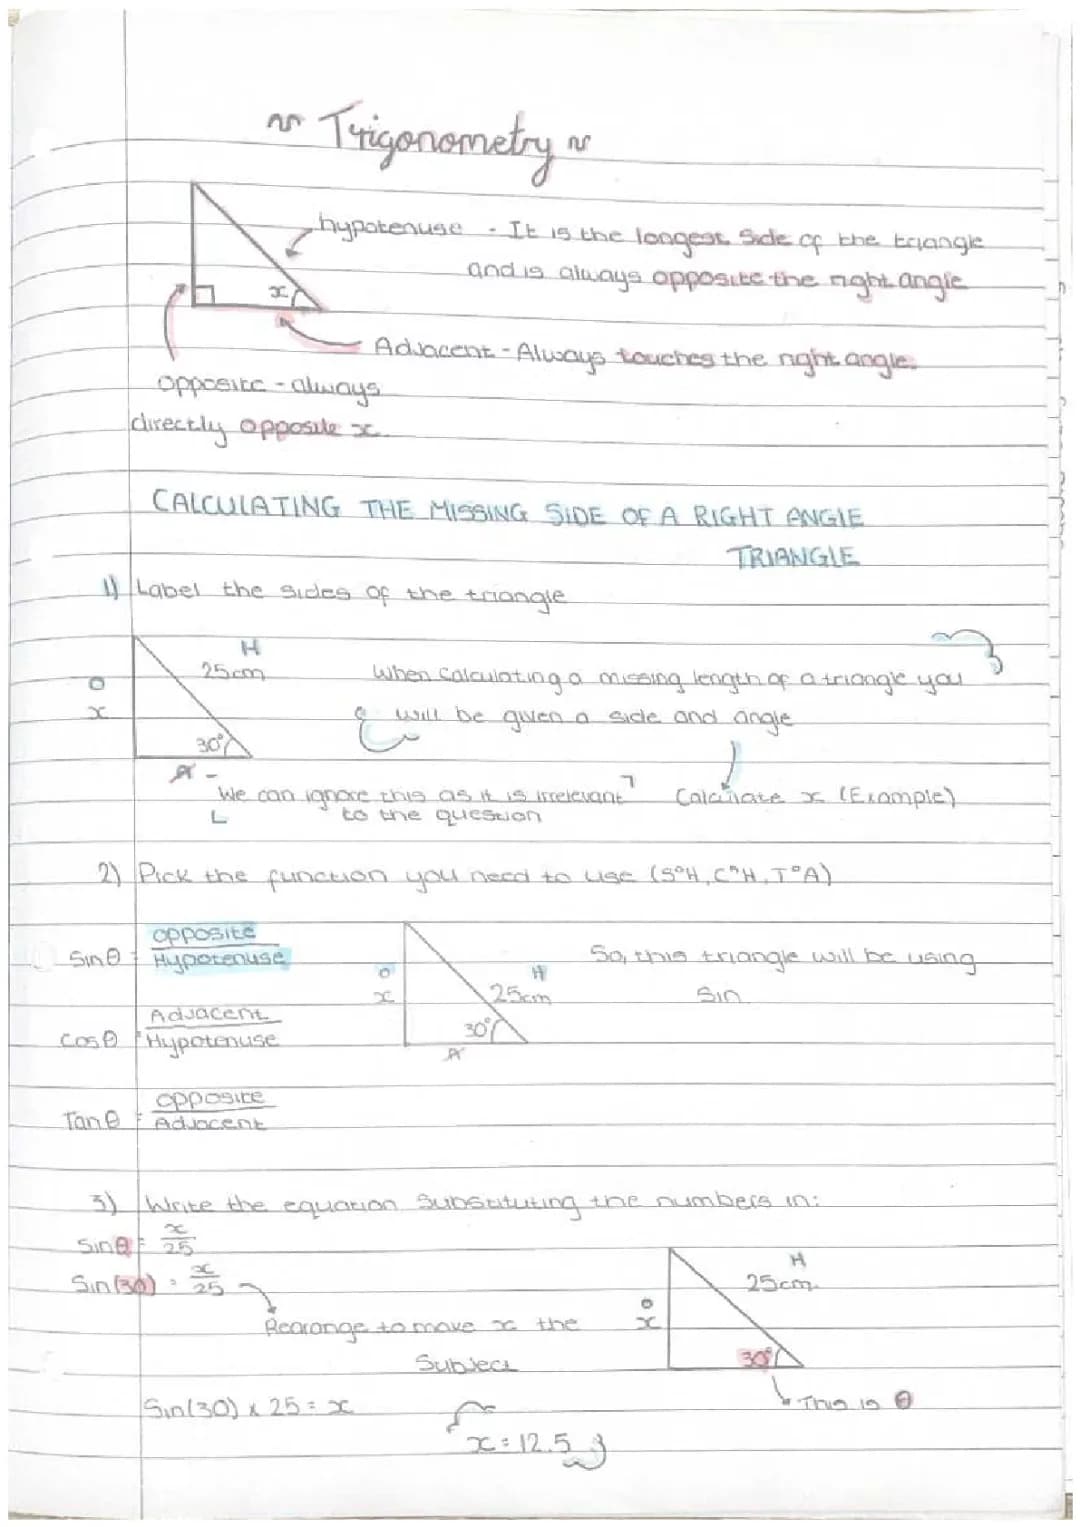 ~ Trigonometry ~
hypotenuse - It is the longest side of the triangle
and is always opposite the right angle
x
Adjacent - Always touches the right angle.
opposite - always
directly opposite x.
CALCULATING THE MISSING SIDE OF A RIGHT ANGLE
TRIANGLE
1) Label the sides of the triangle
H
25cm
O
x
30°
A -
When calculating a missing length of a triangle you
will be given a side and angle
We can ignore this as it is irrelevant
to the question
Calculate x (Example)
2) Pick the function you need to use (S°H, CᴬH, T°A)
Sinθ = opposite
Hypotenuse
O
x
H
25cm
30°
A
So, this triangle will be using
Sin
Cosθ = Adjacent
Hypotenuse
Tanθ = opposite
Adjacent
3) Write the equation substituting the numbers in:
Sinθ = x
25
Sin(30) = x
25
H
25cm
O
x
30°
This is θ
Rearange to make x the
Subject
Sin(30) x 25 = x
x = 12.5